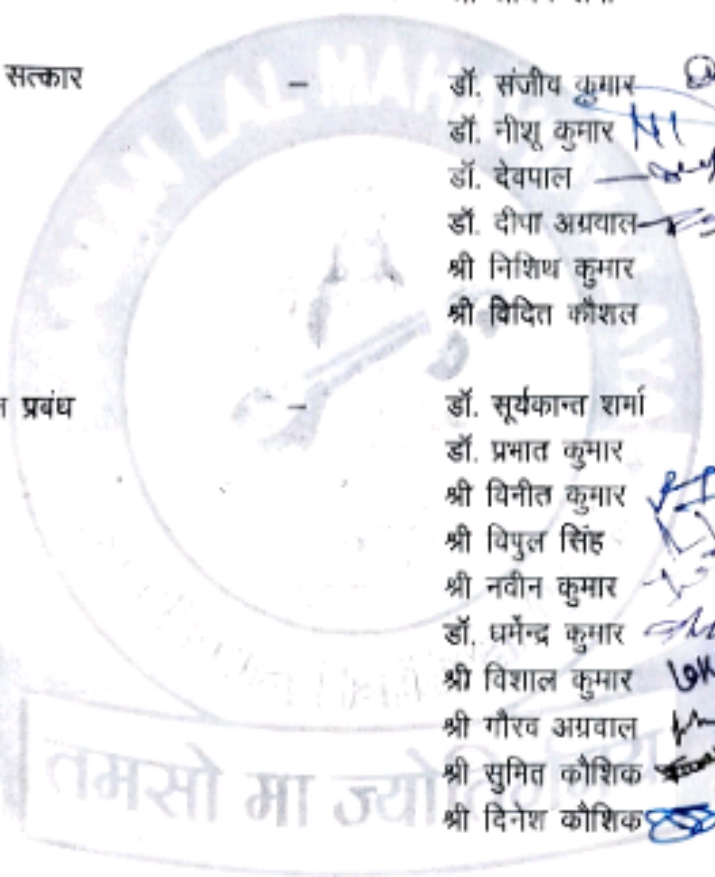 सत्कार – डॉ. संजीव कुमार
डॉ. नीशू कुमार
डॉ. देवपाल
डॉ. दीपा अग्रवाल
श्री निशिथ कुमार
श्री विदित कौशल
प्रबंध – डॉ. सूर्यकान्त शर्मा
डॉ. प्रभात कुमार
श्री विनीत कुमार
श्री विपुल सिंह
श्री नवीन कुमार
डॉ. धर्मेन्द्र कुमार
श्री विशाल कुमार
श्री गौरव अग्रवाल
श्री सुमित कौशिक
श्री दिनेश कौशिक
LAL
तमसो मा